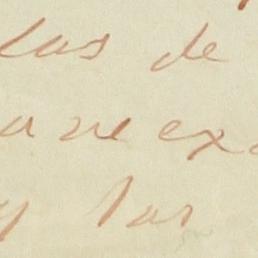 las de
ane exa
y las